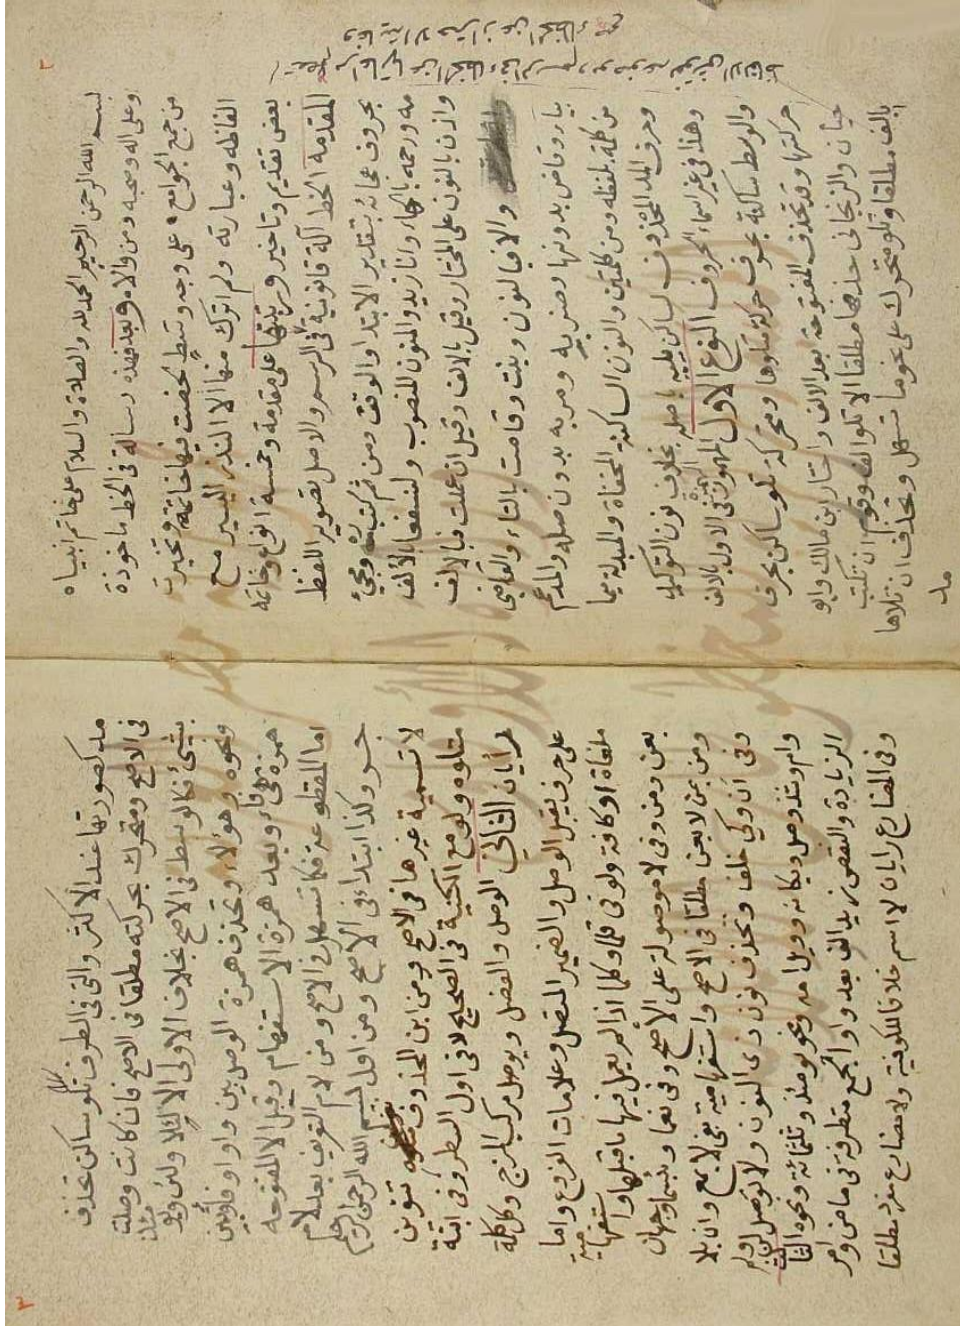 بسم الله الرحمن الرحيم الحمد لله والصلاة والسلام على خاتم انبيائه
وعلى اله وصحبه ومن والاه وبعد فهذه رسالة في الخط ماخوذة
من جمع الجوامع على وجه وسط لخصت فيها خاتمته وتخيرت
الفاظه وعبارته ولم اترك منها الا النذر اليسير مع
بعض تقديم وتاخير ورتبتها على مقدمة وخمسة انواع وخاتمة
المقدمة الخط آلة قانونية في الرسم والاصل تصوير اللفظ
بحروف هجائه بتقدير الابتدا والوقف ومن ثم كتبت ومجيء
مه ورحمه بالهاء وانا زيد والمنون المنصوب ولنسفعا بالألف
واذن بالنون على المختار وقيل بالالف وقيل ان عملت فبالالف
والا فبالنون وبنت وقامت بالتاء والقاضي
بيا وقاض بدونها وضربه ومر به بدون صلة والمدغم
من كلمة بلفظه ومن كلمتين والنون الساكنة المخفاة والمبدلة ميما
وحرف المد المحذوف لساكن يليه باصله بخلاف نون التوكيد
وهذا في غير اسماء الحروف النوع الاول المهموز الهمزة في الاول بالالف
والوسط ساكنة بحرف حركة متلوها ومتحركة تلو ساكن بحرف
حركتها وقد تحذف المفتوحة بعد الالف واختار ابن مالك وابو
حيان والزنجاني حذفها مطلقا الا تلو الف وقوم ان تكتب
بالف مطلقا وتلو متحرك على نحو ما تسهل وتحذف ان تلاها
مد
مد كصورتها عند الاكثر والتي في الطرف تلو ساكن تحذف
في الاصح ومتحرك بحركته مطلقا في الاصح فان كانت وصلت
بشيء فكالوسط في الاصح بخلاف الاولى الا لئلا ولئن
ونحوه وهؤلاء وتحذف همزة الوصل بين واو او فا وبين
همزة هي فاء وبعد همزة الاستفهام وقيل الا المفتوحة
اما المقطوعة فكما تسهل في الاصح ومن لام التعريف بعد لام
جر وكذا ابتداء في الاصح ومن اول بسم الله الرحمن الرحيم
لا تسمية غيرها في الاصح ومن ابن المحذوف تنوين
متلوه ولو مع الكنية في الصحيح لا في اول السطر وفي ابنة
رأيان الثاني الوصل والفصل ويوصل مركب المزج وكل كلمة
على حرف يقبل الوصل والضمير المتصل وعلامات الفرع واما
ملغاة او كافة ولو في قلما وكلما اذا لم يعمل فيها ما قبلها واستفهامية
بعن ومن وفي لا موصولة على الأصح وفي نعما وبئسما وجهان
ومن بمن لا بعن مطلقا في الاصح واستفهامية بفي لا بمع وان بلا
وفي ان وكي خلف وتحذف نون ذي النون ولا توصل لن ولم
وام وشذ وصل ويكأنه وويل امه ونحو يومئذ وثلثمائة ونحوه الثالث
الزيادة والنقص زيد الف بعد واو الجمع متطرفة في ماض وامر
وفي المضارع رايان لا اسم خلافا للكوفية ولا مضارع مفرد مطلقا